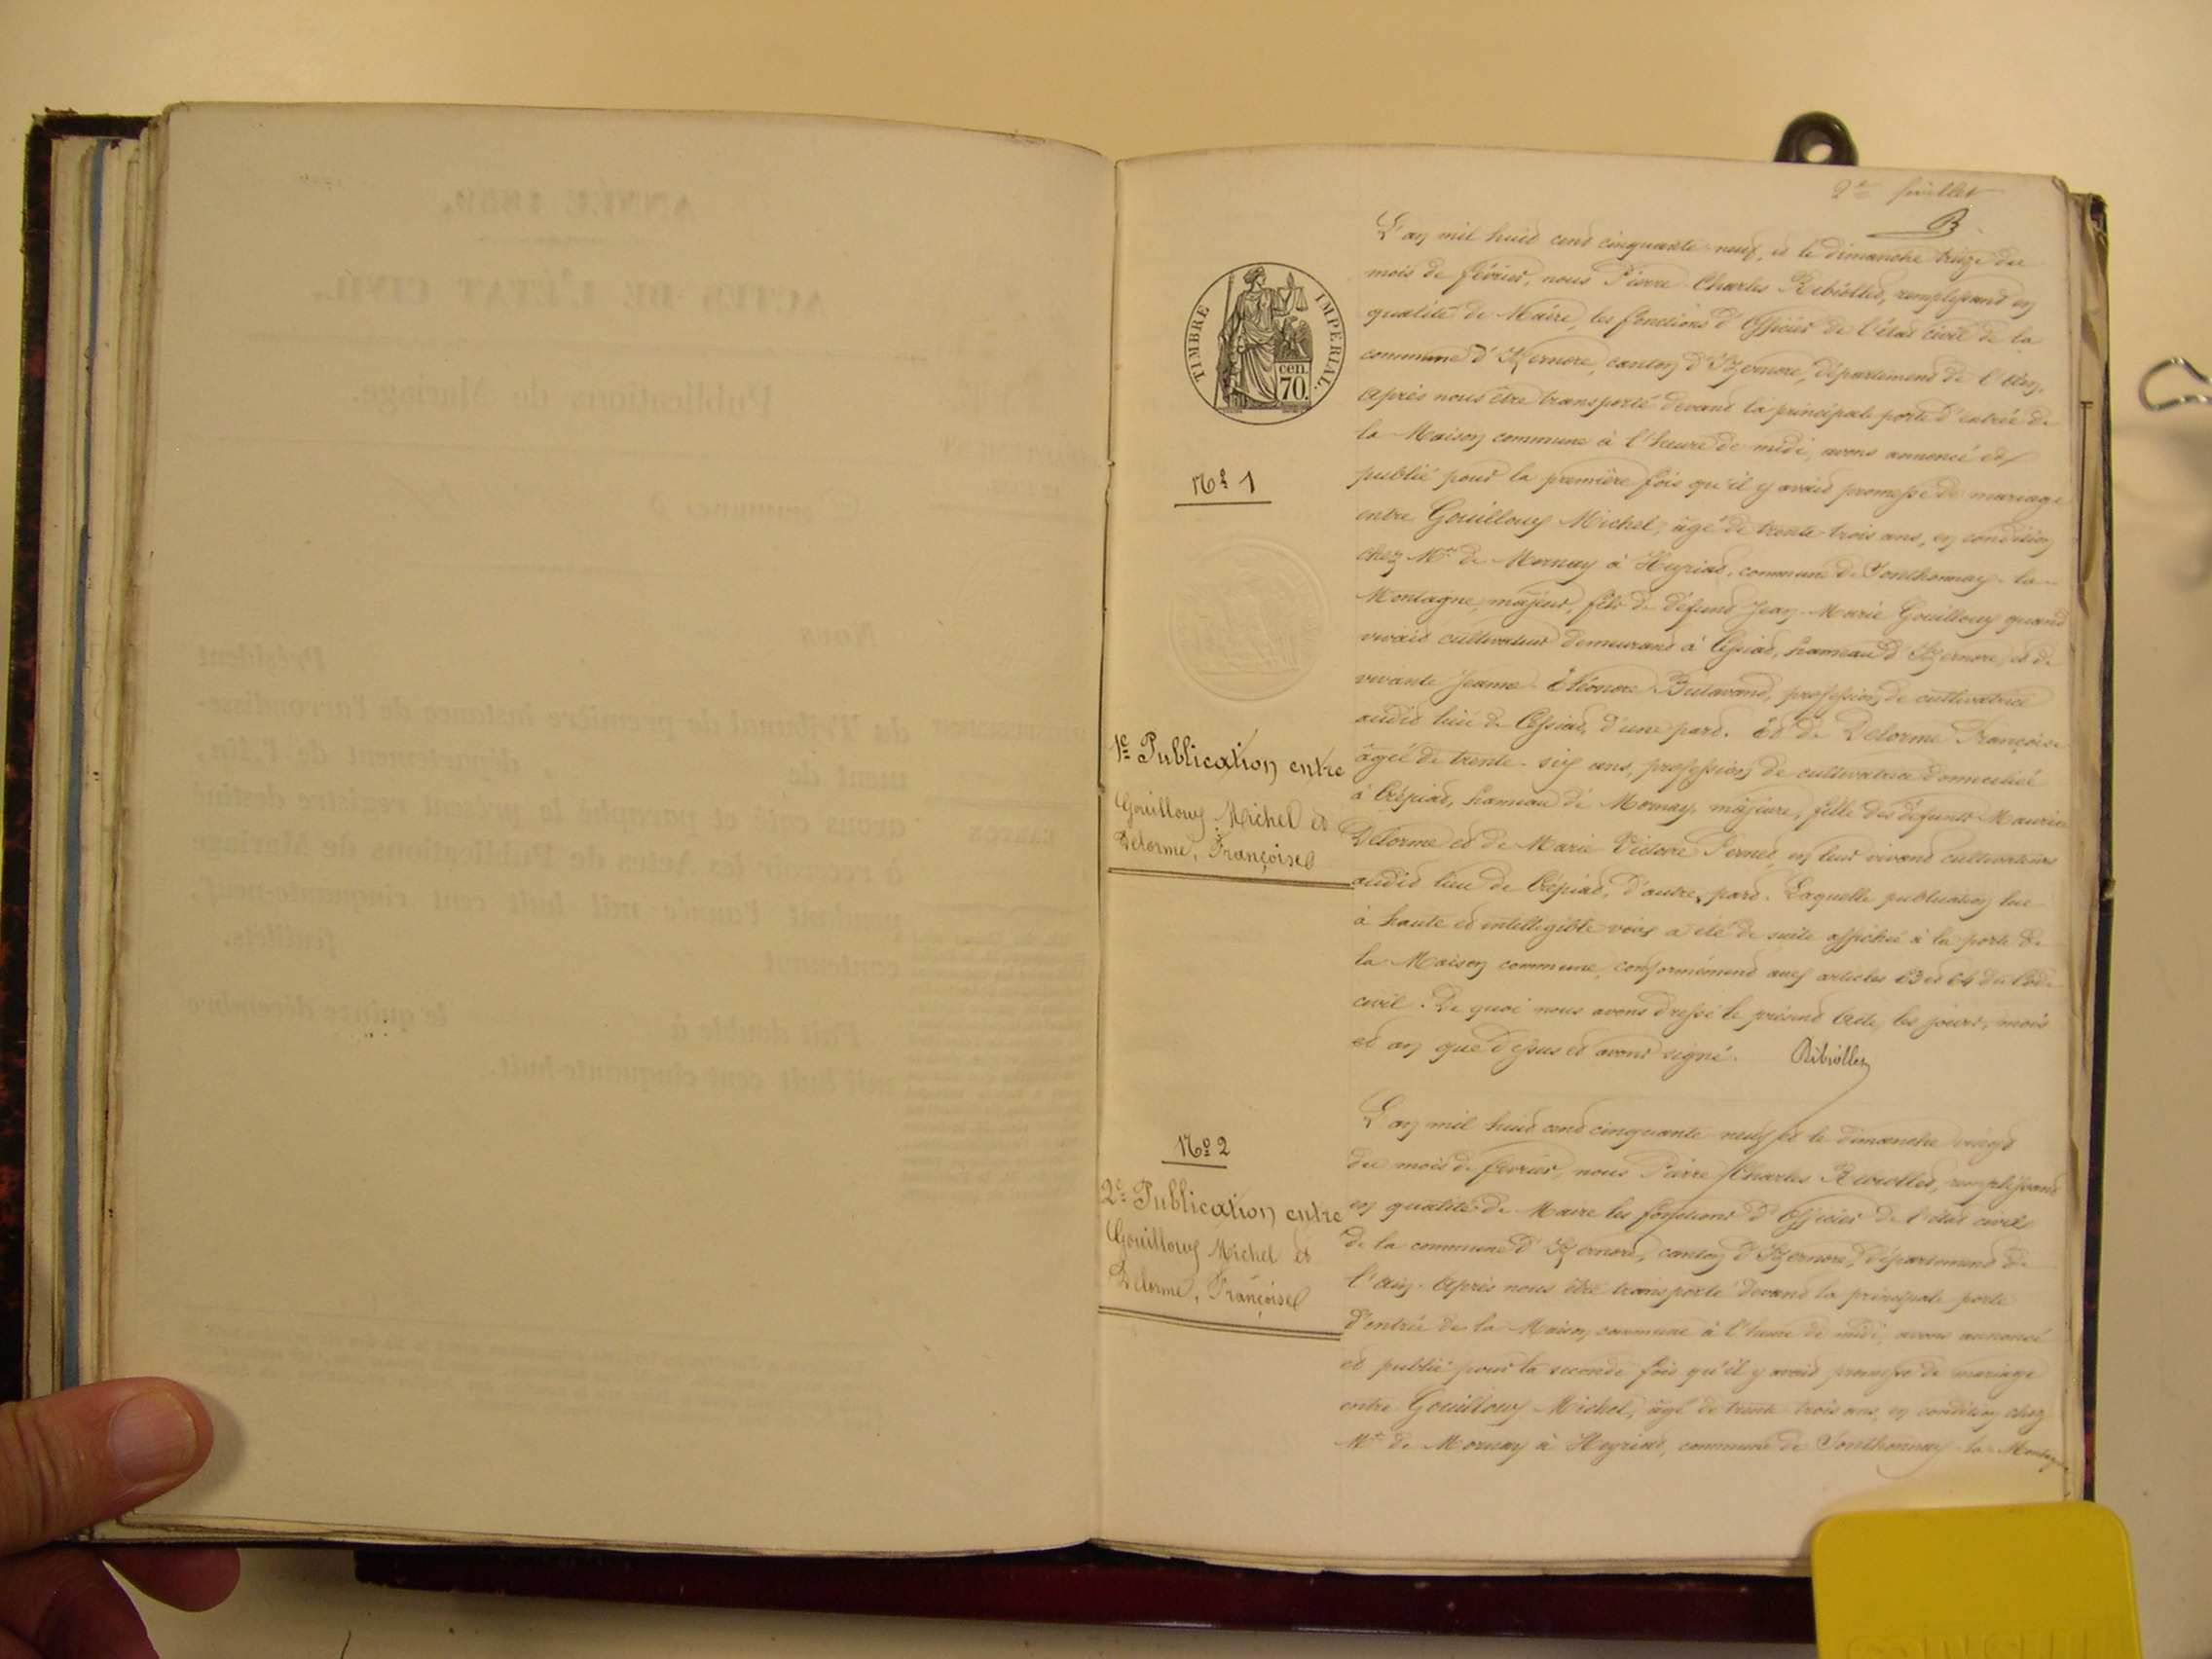 2e feuillet
TIMBRE IMPERIAL.
cen.
70.
L'an mil huit cent cinquante-neuf, et le dimanche treize du
mois de février, nous Pierre-Charles Ribiollet, remplissant en
qualité de Maire, les fonctions d'Officier de l'état civil de la
commune d'Izernore, canton d'Izernore, département de l'Ain.
Après nous être transporté devant la principale porte d'entrée de
la Maison commune à l'heure de midi, avons annoncé et
publié pour la première fois qu'il y avait promesse de mariage
entre Gouilloux Michel, âgé de trente-trois ans, en condition
chez Mr de Mornay à Heyriat, commune de Sonthonnax-la-
Montagne, majeur, fils de défunt Jean-Marie Gouilloux quand
vivait cultivateur demeurant à Cessiat, hameau d'Izernore, et de
vivante Jeanne-Éléonore Butavand, profession de cultivatrice
audit lieu de Cessiat, d'une part. Et de Delorme Françoise
âgée de trente-six ans, profession de cultivatrice domiciliée
à Crépiat, hameau de Mornay, majeure, fille des défunts Maurice
Delorme et de Marie Victoire Pernet, en leur vivant cultivateurs
audit lieu de Crépiat, d'autre part. Laquelle publication lue
à haute et intelligible voix a été de suite affichée à la porte de
la Maison commune, conformément aux articles 63 et 64 du Code
civil. De quoi nous avons dressé le présent Acte, les jour, mois
et an que dessus et avons signé. Ribiollet
No 1
1e Publication entre
Gouilloux Michel et
Delorme, Françoise
L'an mil huit cent cinquante neuf et le dimanche vingt
du mois de février, nous Pierre Charles Ribiollet, remplissant
en qualité de Maire les fonctions d'Officier de l'état civil
de la commune d'Izernore, canton d'Izernore, département de
l'Ain. Après nous être transporté devant la principale porte
d'entrée de la Maison commune à l'heure de midi, avons annoncé
et publié pour la seconde fois qu'il y avait promesse de mariage
entre Gouilloux Michel, âgé de trente-trois ans, en condition chez
Mr de Mornay à Heyriat, commune de Sonthonnax-la-Montagne
No 2
2e Publication entre
Gouilloux Michel et
Delorme, Françoise
ANNÉE 1859.
ACTES DE L'ÉTAT CIVIL.
Publications de Mariage.
Nous
Président
du Tribunal de première instance de l'arrondisse-
ment de département de l'Ain,
avons coté et paraphé le présent registre destiné
à recevoir les Actes de Publications de Mariage
pendant l'année mil huit cent cinquante-neuf,
contenant feuillets.
Fait double à le quinze décembre
mil huit cent cinquante-huit.